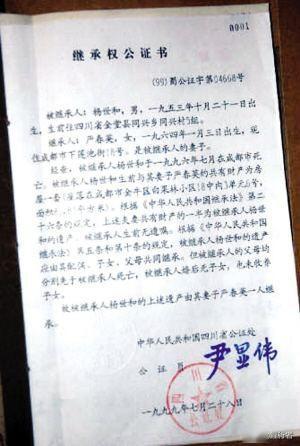 0001
继承权公证书
(99)蜀公证字第04668号
被继承人：杨世和，男，一九五三年十月二十一日出
生，生前住四川省金堂县同兴乡同兴村5组。
继承人：严春英，女，一九六四年一月三日出生，现
住成都市下莲池街18号，是被继承人的妻子。
经查，被继承人杨世和于一九九六年七月在成都市死
亡。被继承人杨世和生前与其妻子严春英的共有财产为房
屋一套（座落在成都市金牛区白果林小区18中内1单元6号，
面积 平方米）。根据《中华人民共和国继承法》第二
十六条的规定，上述夫妻共有财产的一半为被继承人杨世
和的遗产。被继承人生前无遗嘱。根据《中华人民共和国
继承法》第五条和第十条的规定，被继承人杨世和的遗产
应由其配偶、子女、父母共同继承。但被继承人的父母均
分别先于被继承人死亡，被继承人婚后无子女，也未收养
子女。
故被继承人杨世和的上述遗产由其妻子严春英一人继
承。
中华人民共和国四川省公证处
公证员 尹显伟
一九九九年七月二十八日